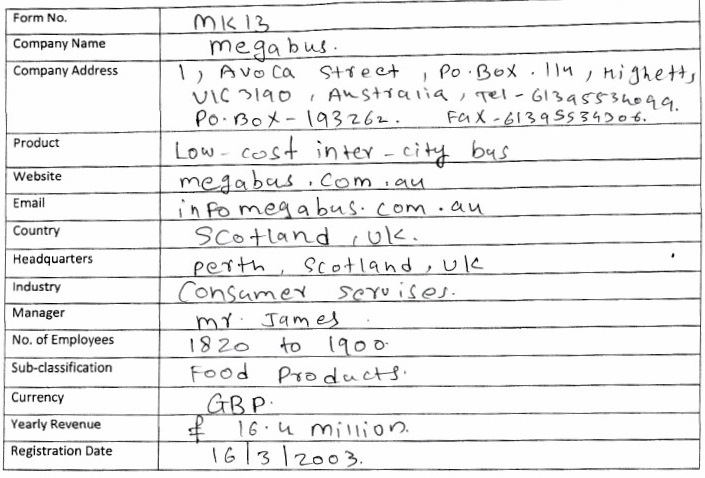 Form No. MK13
Company Name megabus.
Company Address 1, Avoca Street, Po.Box.114, Highett,
VIC 3190, Australia, Tel-61395534099.
Po.Box-193262. Fax-61395534906.
Product Low-cost inter-city bus
Website megabus.com.au
Email infomegabus.com.au
Country Scotland, UK.
Headquarters perth, Scotland, UK
Industry Consumer servises.
Manager mr. James.
No. of Employees 1820 to 1900.
Sub-classification Food Products.
Currency GBP.
Yearly Revenue £ 16.4 million.
Registration Date 16/3/2003.